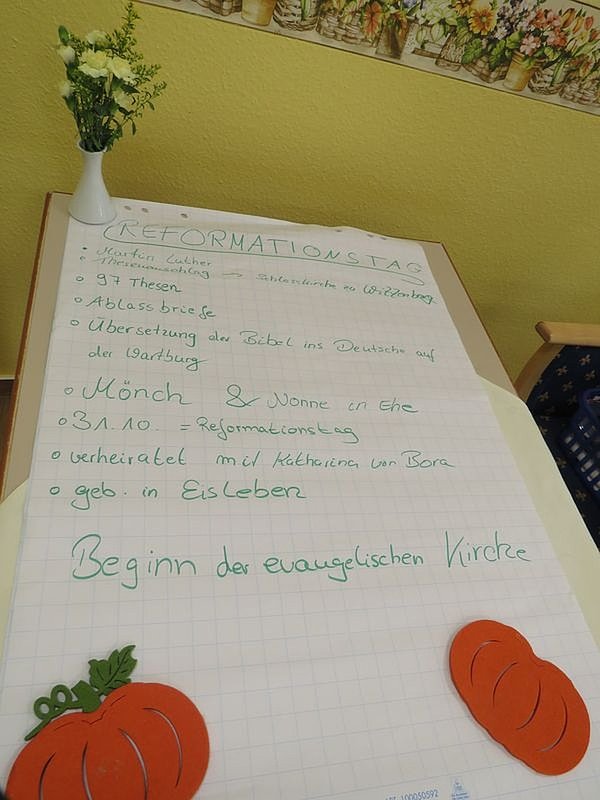 REFORMATIONSTAG
• Martin Luther
• Thesenanschlag → Schlosskirche zu Wittenberg
• 97 Thesen
• Ablassbriefe
• Übersetzung der Bibel ins Deutsche auf
der Wartburg
• Mönch & Nonne in Ehe
• 31.10. = Reformationstag
• verheiratet mit Katharina von Bora
• geb. in Eisleben
Beginn der evangelischen Kirche
100050592